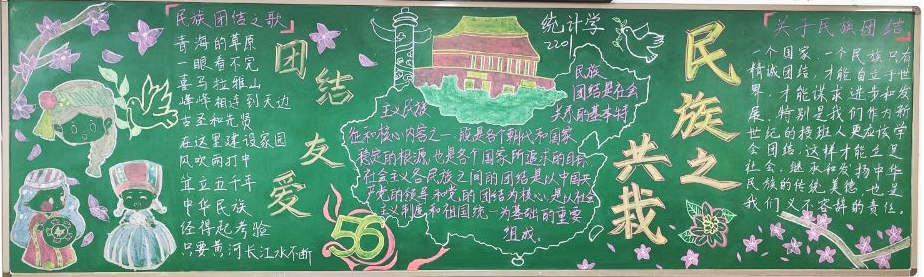 民族团结之歌
青海的草原
一眼看不完
喜马拉雅山
峰峰相连到天边
古圣和先贤
在这里建设家园
风吹雨打中
耸立五千年
中华民族
经得起考验
只要黄河长江水不断
团结友爱
56
统计学
220
民族
团结是社会
关系的基本特
主义民族
征和核心内容之一般是各个朝代和国家
稳定的根源,也是各个国家所追求的目标
社会主义各民族之间的团结是以中国共
产党的领导和党的团结为核心,是以社会
主义制度和祖国统一为基础的重要
组成。
民族之
共栽
关于民族团结
一个国家,一个民族只有
精诚团结,才能自立于世
界,才能谋求进步和发
展。特别是我们作为新
世纪的接班人更应该学
会团结,这样才能立足
社会,继承和发扬中华
民族的传统美德,也是
我们义不容辞的责任。